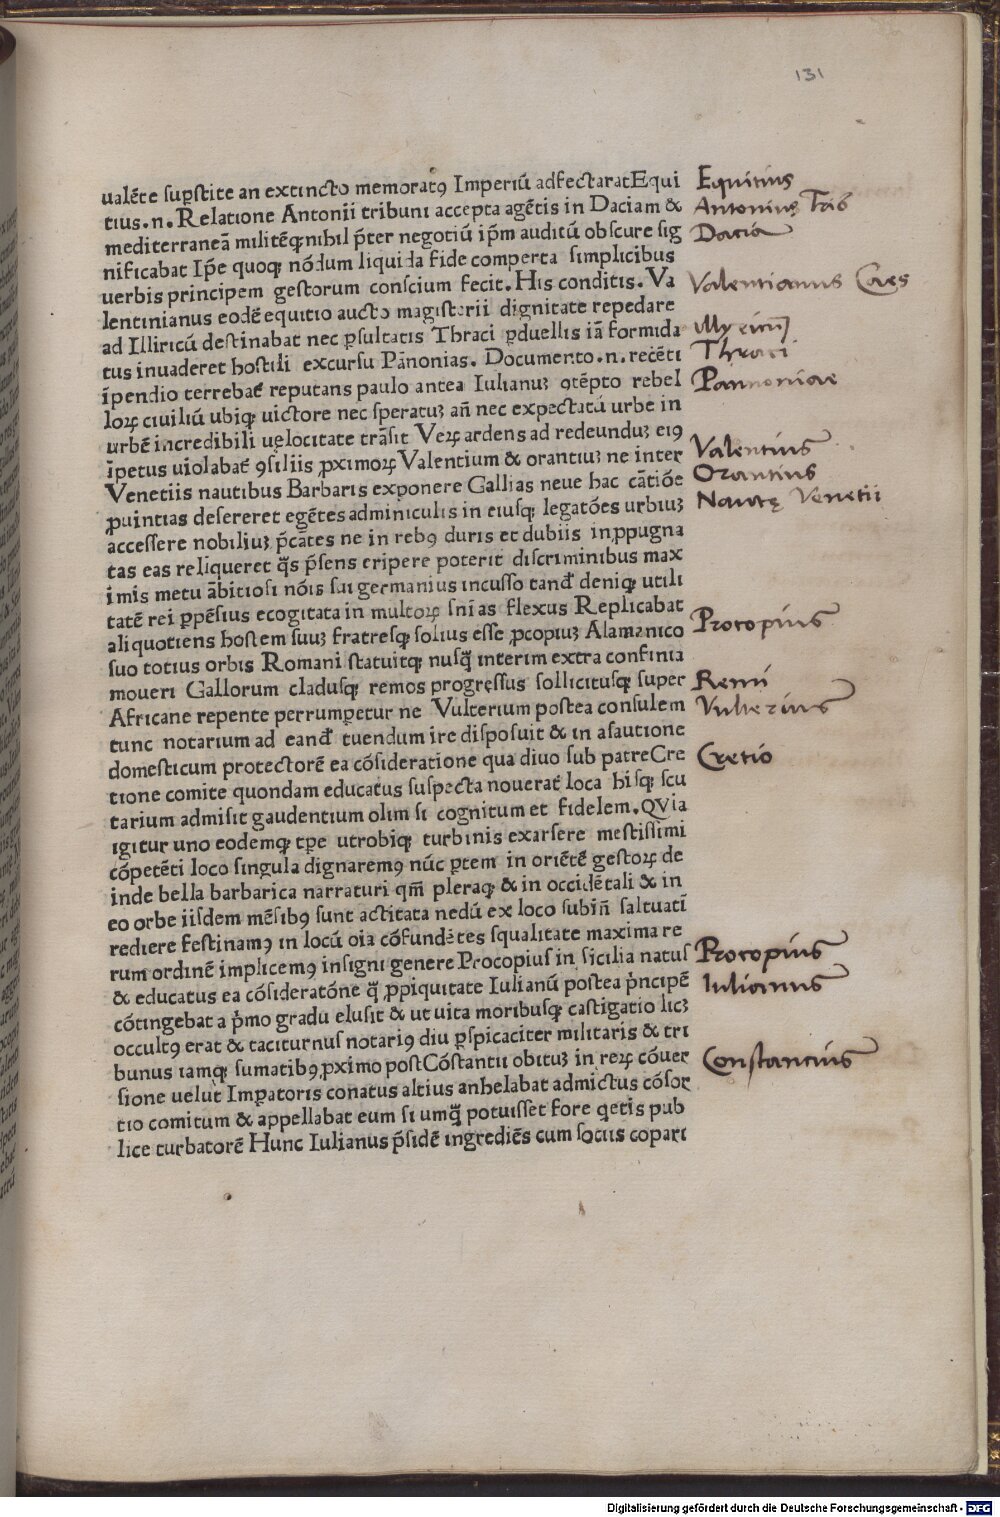 131
ualēte suꝑstite an extincto memoratꝯ Imperiū adfectaratEqui
tius.n.Relatione Antonii tribuni accepta agētis in Daciam &
mediterraneā militēq;nihil p̄ter negotiū ip̄m auditū obscure sig
nificabat Ip̄e quoq; nōdum liquida fide comperta simplicibus
uerbis principem gestorum conscium fecit. His conditis. Va
lentinianus eodē equitio aucto magisterii dignitate repedare
ad Illiricū destinabat nec ꝑsultatis Thraci ꝑduellis iā formida
tus inuaderet hostili excursu Pānonias. Documento.n.recēti
īpendio terrebat̄ reputans paulo antea Iulianuꝫ ꝯtēpto rebel
loꝝ ciuiliū ubiq; uictore nec speratuꝫ an̄ nec expectatū urbe in
urbē incredibili uelocitate trāsit Veꝝ ardens ad redeunduꝫ eiꝯ
īpetus uiolabat̄ ꝯsiliis ꝓximoꝝ Valentium & orantiuꝫ ne inter
Venetiis nautibus Barbaris exponere Gallias neue hac cātiōe
ꝓuintias desereret egētes adminiculis in eiusq; legatōes urbiuꝫ
accessere nobiliuꝫ p̄cātes ne in rebꝯ duris et dubiis inꝓpugna
tas eas reliqueret q̄s p̄sens eripere poterit discriminibus max
imis metu ābitiosi nōis sui germanius incusso tand̄ deniq; utili
tatē rei ꝑpēsius ecogitata in multoꝝ sn̄ias flexus Replicabat
aliquotiens hostem suuꝫ fratresq; solius esse ꝓcopiuꝫ Alamanico
suo totius orbis Romani statuitq; nusq̄ interim extra confinia
moueri Gallorum cladusq; remos progressus sollicitusq; super
Africane repente perrumꝑetur ne Vulterium postea consulem
tunc notarium ad eand̄ tuendum ire disposuit & in asautione
domesticum protectorē ea cōsideratione qua diuo sub patreCre
tione comite quondam educatus suspecta nouerat̄ loca hisq; scu
tarium admisit gaudentium olim si cognitum et fidelem. QVia
igitur uno eodemq; tꝑe utrobiq; turbinis exarsere mestissimi
cōpetēti loco singula dignaremꝯ nūc ꝑtem in oriētē gestoꝝ de
inde bella barbarica narraturi qm̄ pleraq; & in occidētali & in
eo orbe iisdem mēsibꝯ sunt actitata nedū ex loco subin̄ saltuatī
rediere festinamꝯ in locū oīa cōfundētes squalitate maxima re
rum ordinē implicemꝯ insigni genere Procopius in sicilia natus
& educatus ea cōsideratōne q̄ ꝓpiquitate Iulianū postea p̄ncipē
cōtingebat a p̄mo gradu elusit & ut uita moribusq; castigatio licꝫ
occultꝯ erat & taciturnus notariꝯ diu ꝑspicaciter militaris & tri
bunus iamq; sumatibꝯ ꝓximo postCōstantii obituꝫ in reꝝ cōuer
sione uelut Imꝑatoris conatus altius anhelabat admictus cōsor
tio comitum & appellabat eum si umq̄ potuisset fore qetis pub
lice turbatorē Hunc Iulianus p̄sidē ingrediēs cum sociis copari
Equitius
Antonius Trib
Dacia
Valentianus Caes
Illyricum
Thraci
Pannoniae
Valentius
Orantius
Nautę Venetii
Procopius
Remi
Vulterius
Cretio
Procopius
Iulianus
Constantius
Digitalisierung gefördert durch die Deutsche Forschungsgemeinschaft - DFG